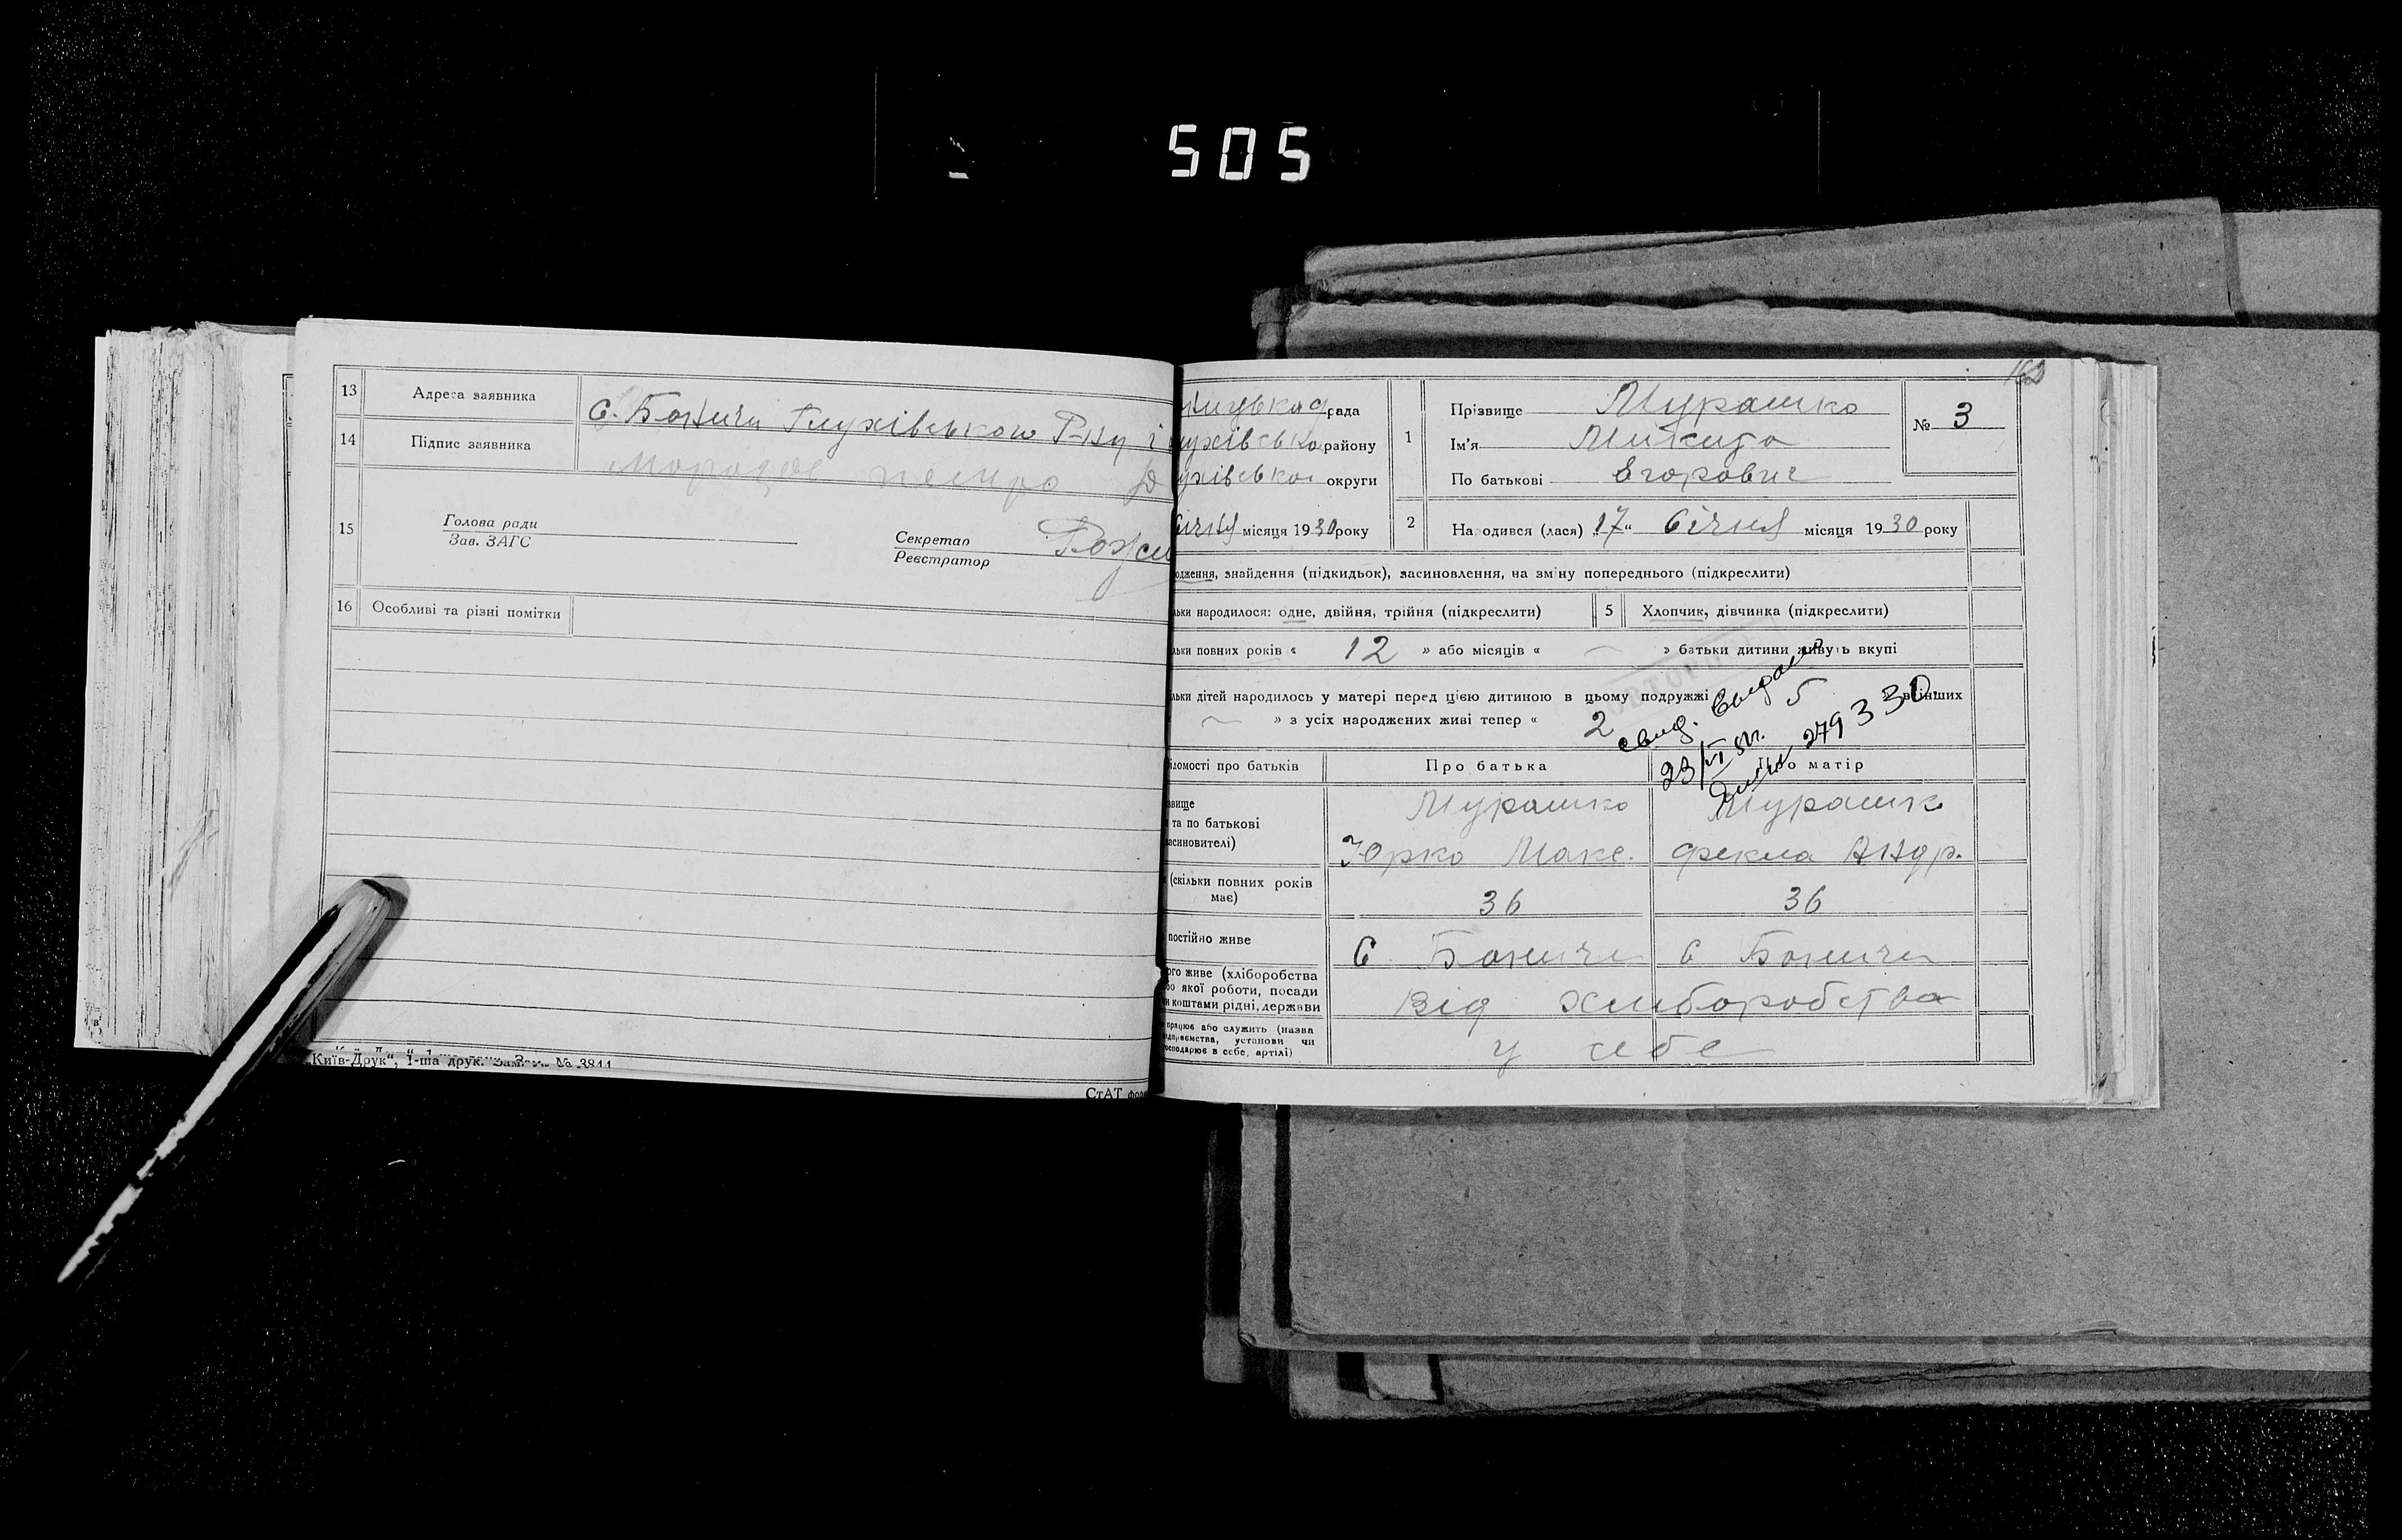 505
13 Адреса заявника с. Бокичи Глухівського Р-ну і
14 Підпис заявника
15 Голова ради
Зав. ЗАГС
Секретар
Реєстратор
16 Особливі та різні помітки
Київ-Друк“, 1-ша друк. Зам. № 3811
СтАТ
162
рада
району
округи
1 Прізвище Мурашко
Ім'я Микита
По батькові Егорович
№ 3
місяця 1930 року
2 Народився (лася) „17“ Січня місяця 1930 року
одження, знайдення (підкидьок), засиновлення, на зміну попереднього (підкреслити)
льки народилося: одне, двійня, трійня (підкреслити)
5 Хлопчик, дівчинка (підкреслити)
льки повних років « 12 » або місяців « — » батьки дитини живуть вкупі
льки дітей народилось у матері перед цією дитиною в цьому подружжі 5 в інших
» з усіх народжених живі тепер « 2
23/VI
279330
ідомості про батьків Про батька Про матір
звище
та по батькові
асиновителі)
Мурашко
Юрко Макс.
Мурашк
Фекла Андр.
(скільки повних років має) 36 36
постійно живе С Бокичи С Бокичи
ого живе (хліборобства
бо якої роботи, посади
и коштами рідні, держави
Від хлиборобства
працює або служить (назва
підприємства, установи чи
господарює в себе, артілі)
у себе